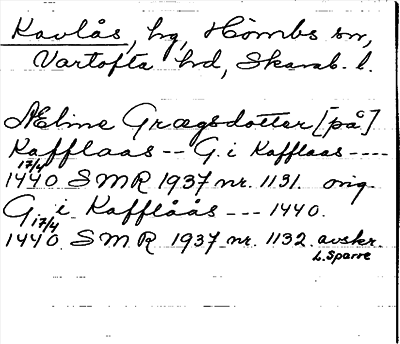 Kavlås, hg, Hömbs sn,
Vartofta hd, Skarab. l.
Æline Grægsdotter [på]
Kafflaas -- G. i Kafflaas ----
17/4
1440 SMR 1937 nr. 1131. orig.
G. i Kafflåås --- 1440.
17/4
1440 SMR 1937 nr. 1132. avskr.
L. Sparre